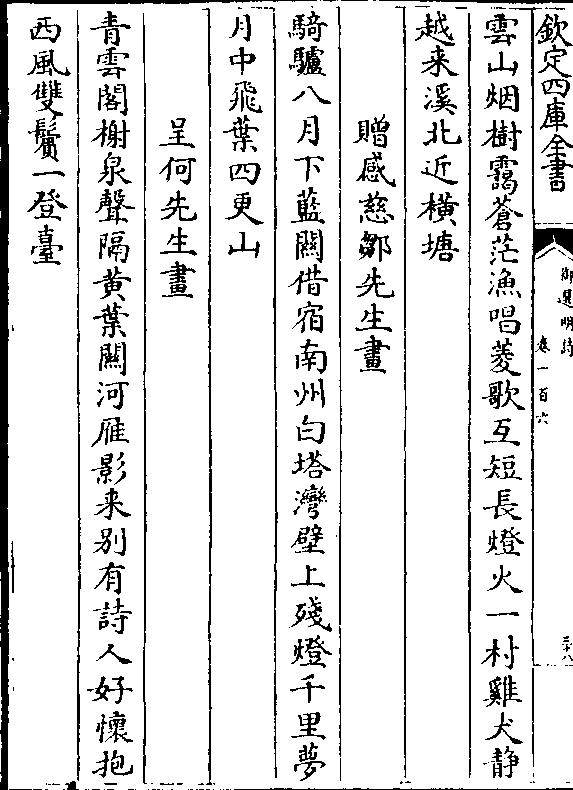 欽定四庫全書
御選明詩
卷一百六
三十八
雲山烟樹靄蒼茫漁唱菱歌互短長燈火一村雞犬静
越来溪北近横塘
贈感慈鄒先生畫
騎驢八月下藍闗借宿南州白塔灣壁上殘燈千里夢
月中飛葉四更山
呈何先生畫
青雲閣榭泉聲隔黄葉闗河雁影来别有詩人好懷抱
西風雙鬢一登臺